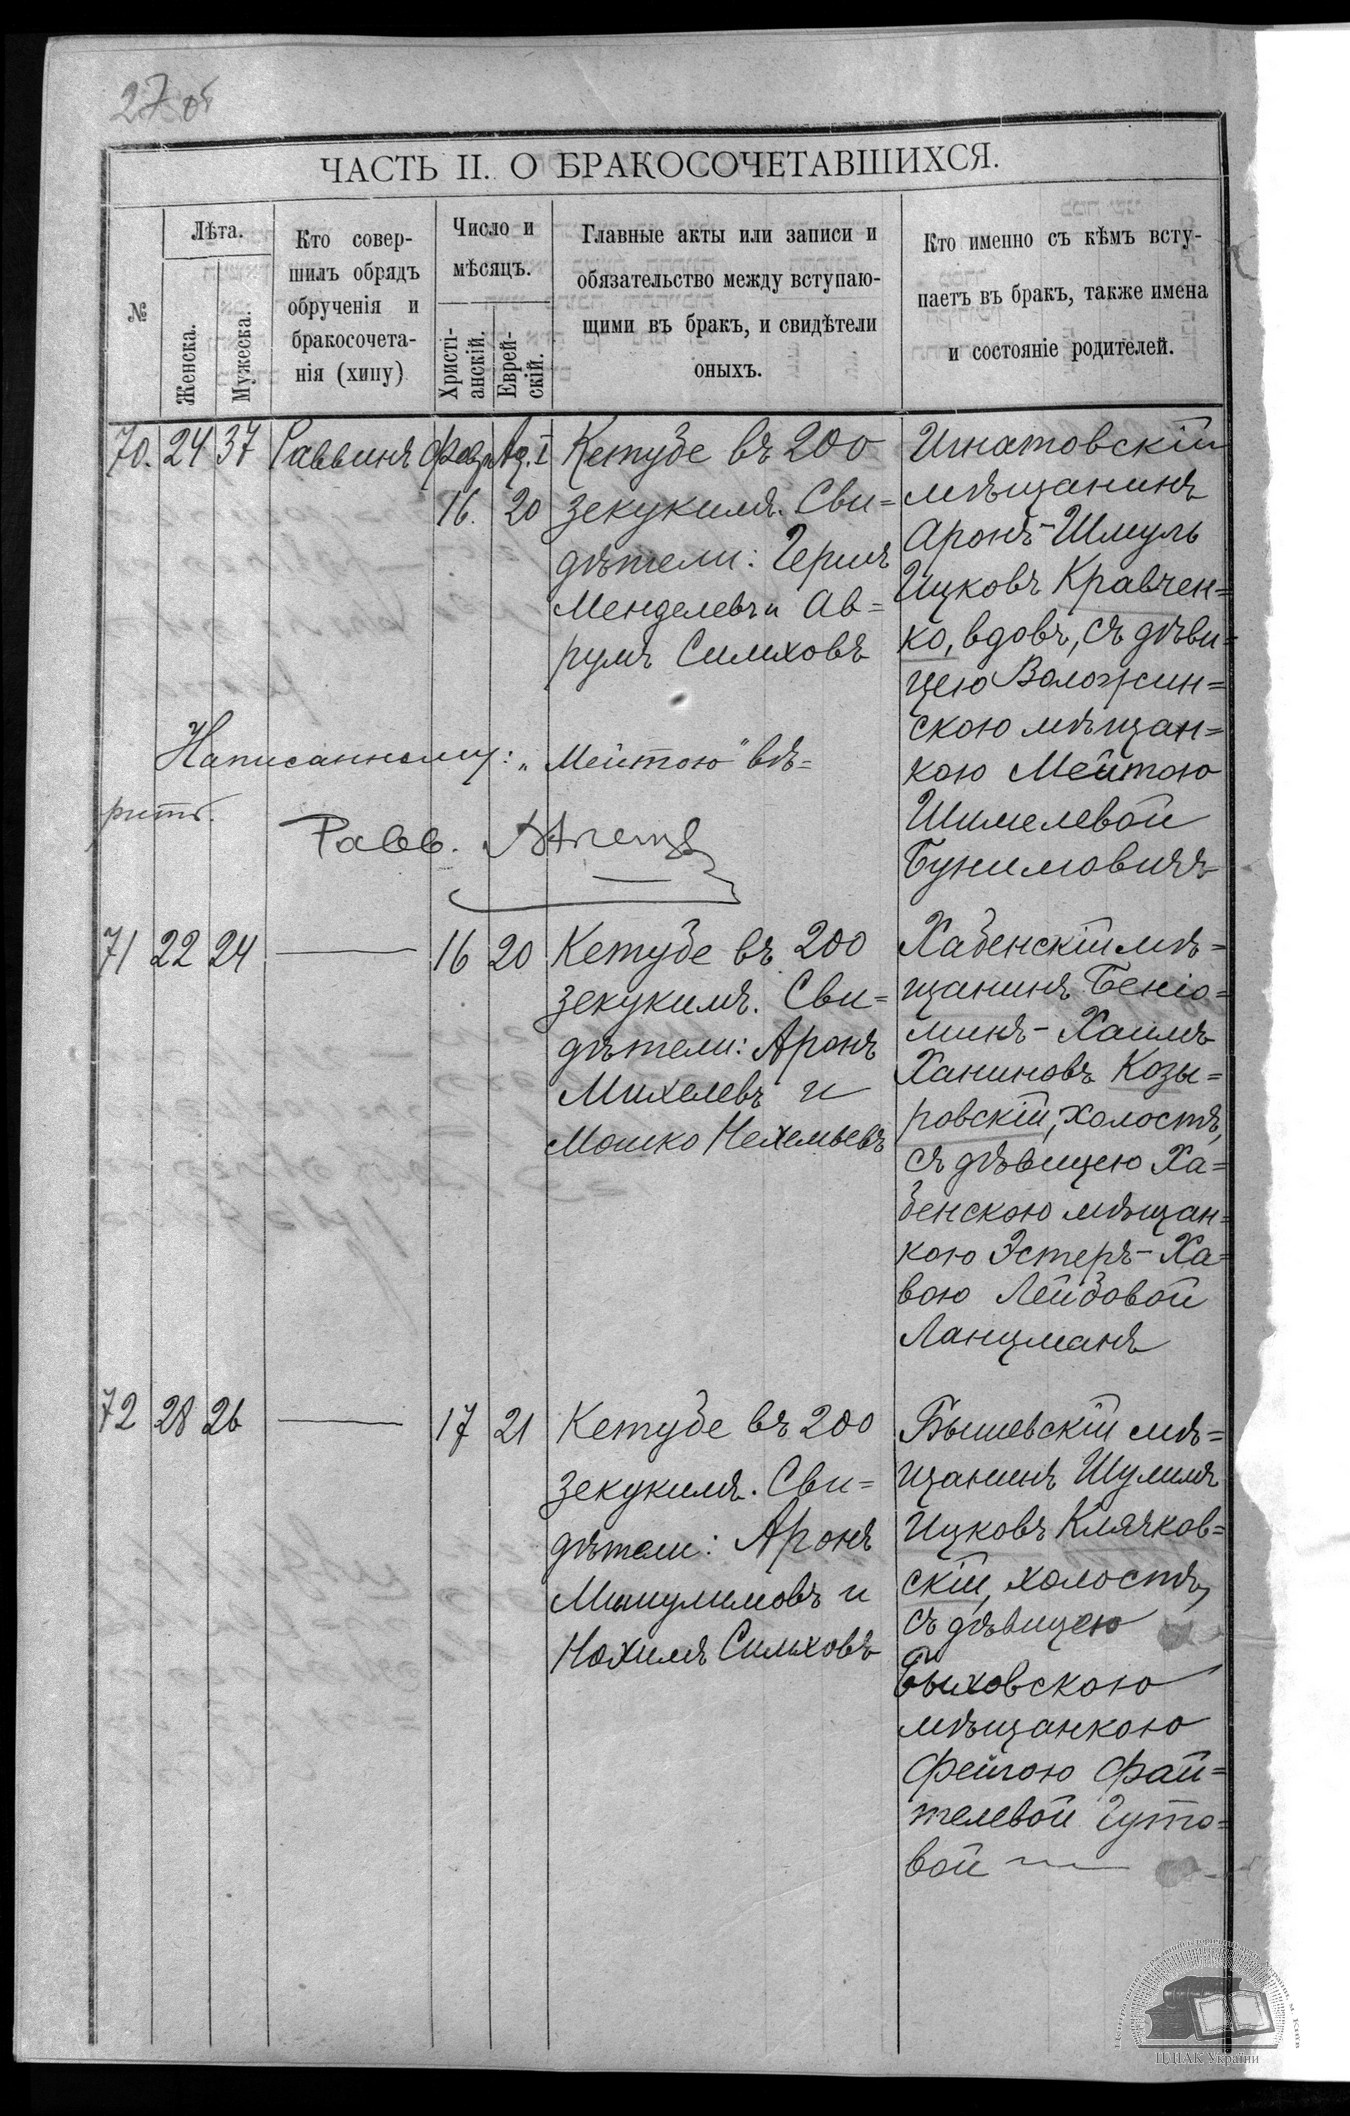 27 об
ЧАСТЬ II. О БРАКОСОЧЕТАВШИХСЯ.
№
Лѣта.
Женска.
Мужеска.
Кто совер-
шилъ обрядъ
обрученія и
бракосочета-
нія (хипу)
Число и
мѣсяцъ.
Христі-
анскій.
Еврей-
скій.
Главные акты или записи и
обязательство между вступаю-
щими въ бракъ, и свидѣтели
оныхъ.
Кто именно съ кѣмъ всту-
паетъ въ бракъ, также имена
и состояніе родителей.
70. 24 37 Раввинъ Февр. Ад. I
16. 20
Кетубе въ 200
зекукимъ. Сви=
дѣтели: Гершъ
Менделевъ и Ав=
румъ Симховъ
Игнатовскій
мѣщанинъ
Аронъ-Шмуль
Ицковъ Кравчен=
ко, вдовъ, съ дѣви=
цею Воложин=
скою мѣщан=
кою Мейтою
Шимелевой
Бунимовичъ
Написанному: „Мейтою" вѣ=
рить.
Равв.
71 22 24 — 16 20
Кетубе въ 200
зекукимъ. Сви=
дѣтели: Аронъ
Михелевъ и
Мошко Нехемьевъ
Хабенскій мѣ=
щанинъ Беніо=
минъ-Хаимъ
Ханиновъ Козы=
ровскій, холостъ,
съ дѣвицею Ха=
бенскою мѣщан=
кою Эстеръ-Ха=
вою Лейбовой
Ланцманъ
72 28 26 — 17 21
Кетубе въ 200
зекукимъ. Сви=
дѣтели: Аронъ
Мишулимовъ и
Нохимъ Симховъ
Бышевскій мѣ=
щанинъ Шулимъ
Ицковъ Клячков=
скій, холостъ,
съ дѣвицею
Быховскою
мѣщанкою
Фейгою Фай=
телевой Гуто=
вой —
ЦДІАК України